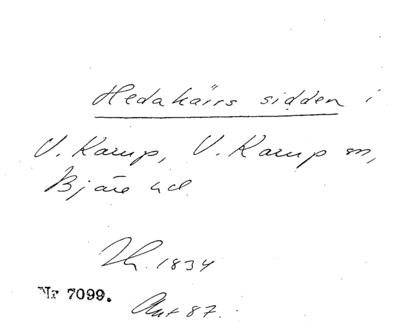 Hedakärs sidden i
V. Karup, V. Karup sn,
Bjäre hd
Th. 1834
Nr 7099.
Ant 87.